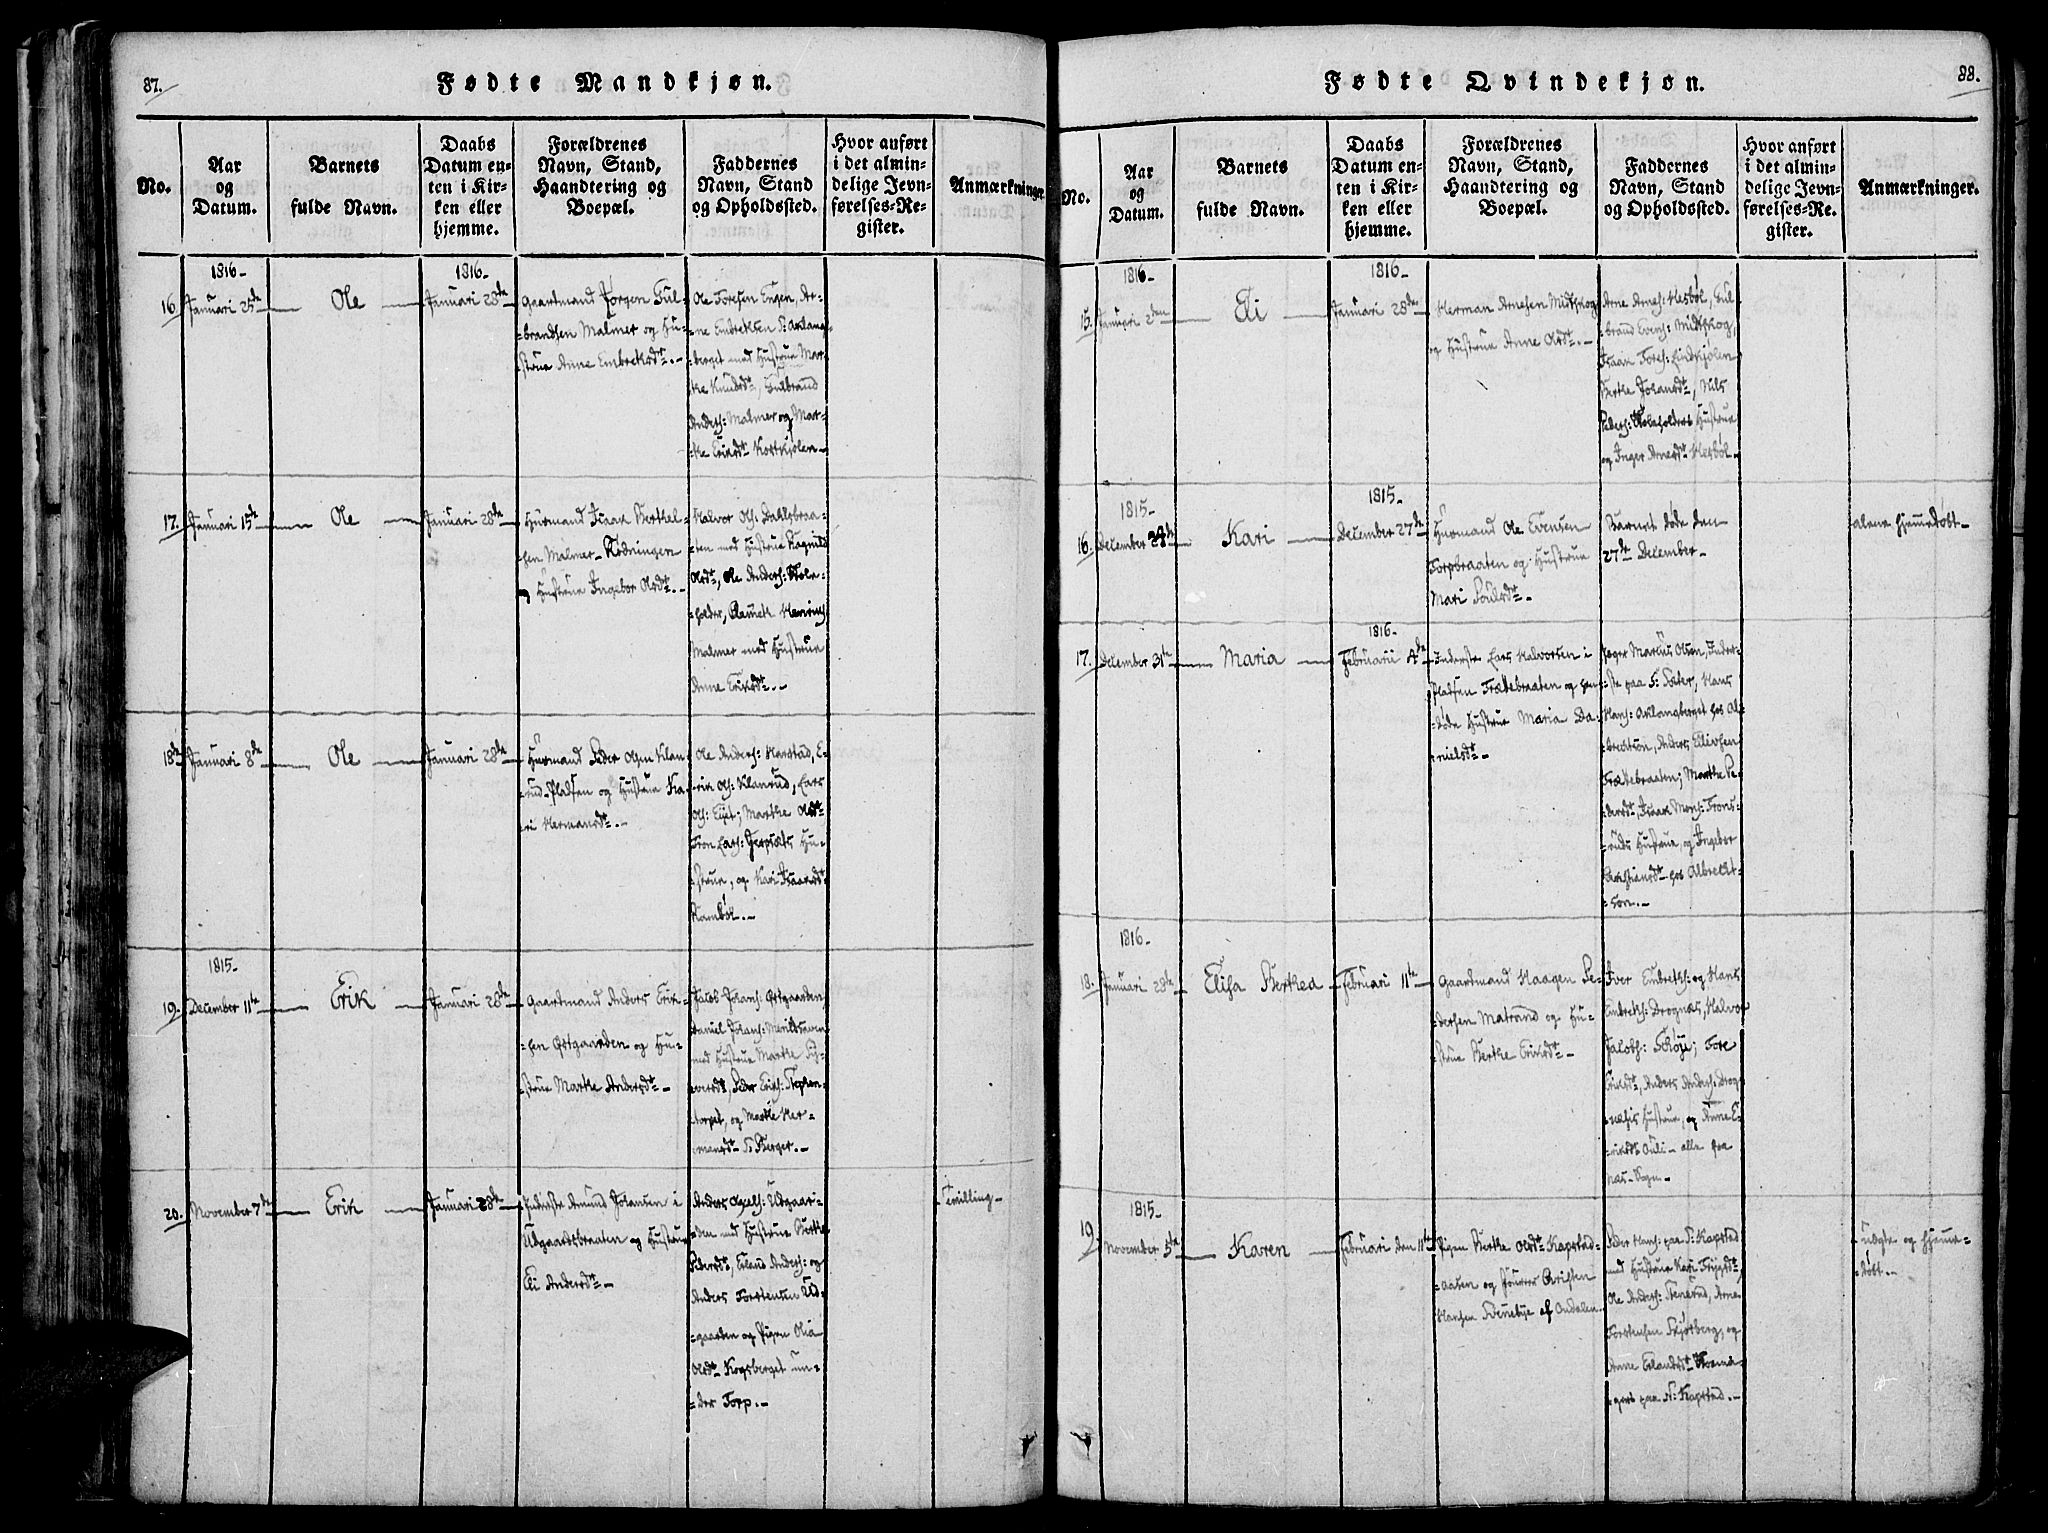 87.
Fødte Mandkjøn.
No.
Aar
og
Datum.
Barnets
fulde Navn.
Daabs
Datum en-
ten i Kir-
ken eller
hjemme.
Forældrenes
Navn, Stand,
Haandtering og
Boepæl.
Faddernes
Navn, Stand
og Opholdssted.
Hvor anført
i det almin-
delige Jevn-
førelses-Re-
gister.
Anmærkninger
1816-
16.
Januari 25de
Ole
1816-
Januari 28de
Gaardmand Jørgen Gul-
-brandsen Malmer og Hu-
-strue Anne Embreksdt.-
Ole Toresen Engen, Ar-
-ne Embreksen S: Aklang-
-berget med Hustrue Mar-
-the Knudsdt, Gulbrand
Anders: Malmer og Mar-
-the Eriksdt Kortkjølen-
17.
Januari 15de
Ole
Januari 28de
Huusmand Isaak Berthel-
-sen Malmer-Rødningen
og Hustrue Ingebor Olsdt.-
Halvor Ols: Dahlsbraa-
-ten med Hustrue Ragnild
Olsdt, Ole Anders: Skole-
-holder, Clemet Henrics
Malmer med Hustrue
Anne Eriksdt.-
18de
Januari 8de
Ole
Januari 28de
Huusmand Peder Olsen Klan-
-rud-Pladsen og Hustrue Ka-
-ri Hermansdt.-
Ole Anders: Harstad, E-
-rik Ols: Klanrud, Lars
Ols: Eijet; Marthe Olsdt
Tron Lars: Jerpsæts Hu-
-strue, og Kari Isaaksdt
Rambøl.-
1815-
19.
December 11te
Erik
Januari 28de
Gaardmand Anders Erik-
-sen Østgaarden og Hu-
-strue Marthe Andersdt-
Jacob Johans: Østgaarden,
Daniel Johans:
med Hustrue Marthe Sy-
-versdt, Peder Eriks: Stephen-
-torpet, og Marthe Her-
-mansdt S: Berger.-
20.
November 7de
Erik
Januari 28de
Inderste Amund Johansen i
Udgaardsbraaten og Hustrue
Eli Andersdt-
Anders Axels: Udgaar-
-den med Hustrue Berthe
Pedersdt, Erland Anders: og
Anders Torstensen Ud-
-gaarden og Pigen Olia
Olsdt Kogsberget un-
-der Torp.-
Tvilling-
88.
Fødte Qvindekjøn.
No.
Aar
og
Datum.
Barnets
fulde Navn.
Daabs
Datum en-
ten i Kir-
ken eller
hjemme.
Forældrenes
Navn, Stand,
Haandtering og
Boepæl.
Faddernes
Navn, Stand
og Opholdssted.
Hvor anført
i det almin-
delige Jevn-
førelses-Re-
gister.
Anmærkninger.
1816-
15.
Januari 2den
Eli
1816-
Januari 28de
Herman Arnesen Midtskog
og Hustrue Anne Olsdt.-
Arne Arnes: Hesbøl, Gul-
-brand Evens: Midtskog,
Isaan Tores: Lindkjølen
Berthe Johansdt, Nils
Peders: Skoleholders Hustrue
og Inger Arnesdt Hesbøl-
1815-
16.
December
Kari
1815-
December 27de
Huusmand Ole Evensen
Torpbraaten og Hustrue
Mari Poulsdt-
Barnet døde den
27de December-
alene hjemmedøbt-
17.
December 31te
Maria
1816-
Februarii 4de
Inderste Lars Halvorsen i
Pladsen Frættebraaten og hans
døde Hustrue Maria Da-
-nielsdt-
Jæger Marcus Olsen, Inder-
-ste paa S: Sæter, Hans
Hans: Aklangberget hos Al-
-brectson, Anders Ellevsen
Frættebraaten; Marthe Pe-
-dersdt, Isaak Mons: Frons-
-ruds Hustrue, og Ingebor
Christiansdt hos Albrecht-
-son.-
1816-
18.
Januari 28de
Elisa Berthea
Februari 11te
Gaardmand Haagen Pe-
-dersen Matrand og Hu-
-strue Berthe Eriksdt-
Iver Embreths: og Hans
Embreths: Drognæs, Halvor
Jacobs: Skøje; Tore
Eriksdt, Anders Anders: Drog-
-næsis Hustrue, og Anne E-
-riksdt Ouli- alle fra
nas-Sogn-
1815-
19
November 5te
Karen
Februari den 11te
Pigen Berthe Olsdt Kapstad-
-aasen og Christen
Hansen Svenebye af Oudalen.
Peder Hans: paa S: Kapstad
med Hustrue Kari Frijsdt,
Ole Anders: Stensrud, Arne
Torstensen Skjøtberg, og
Anne Erlandsdt
paa N: Kapstad.-
uægte og hjemme-
-døbt.-